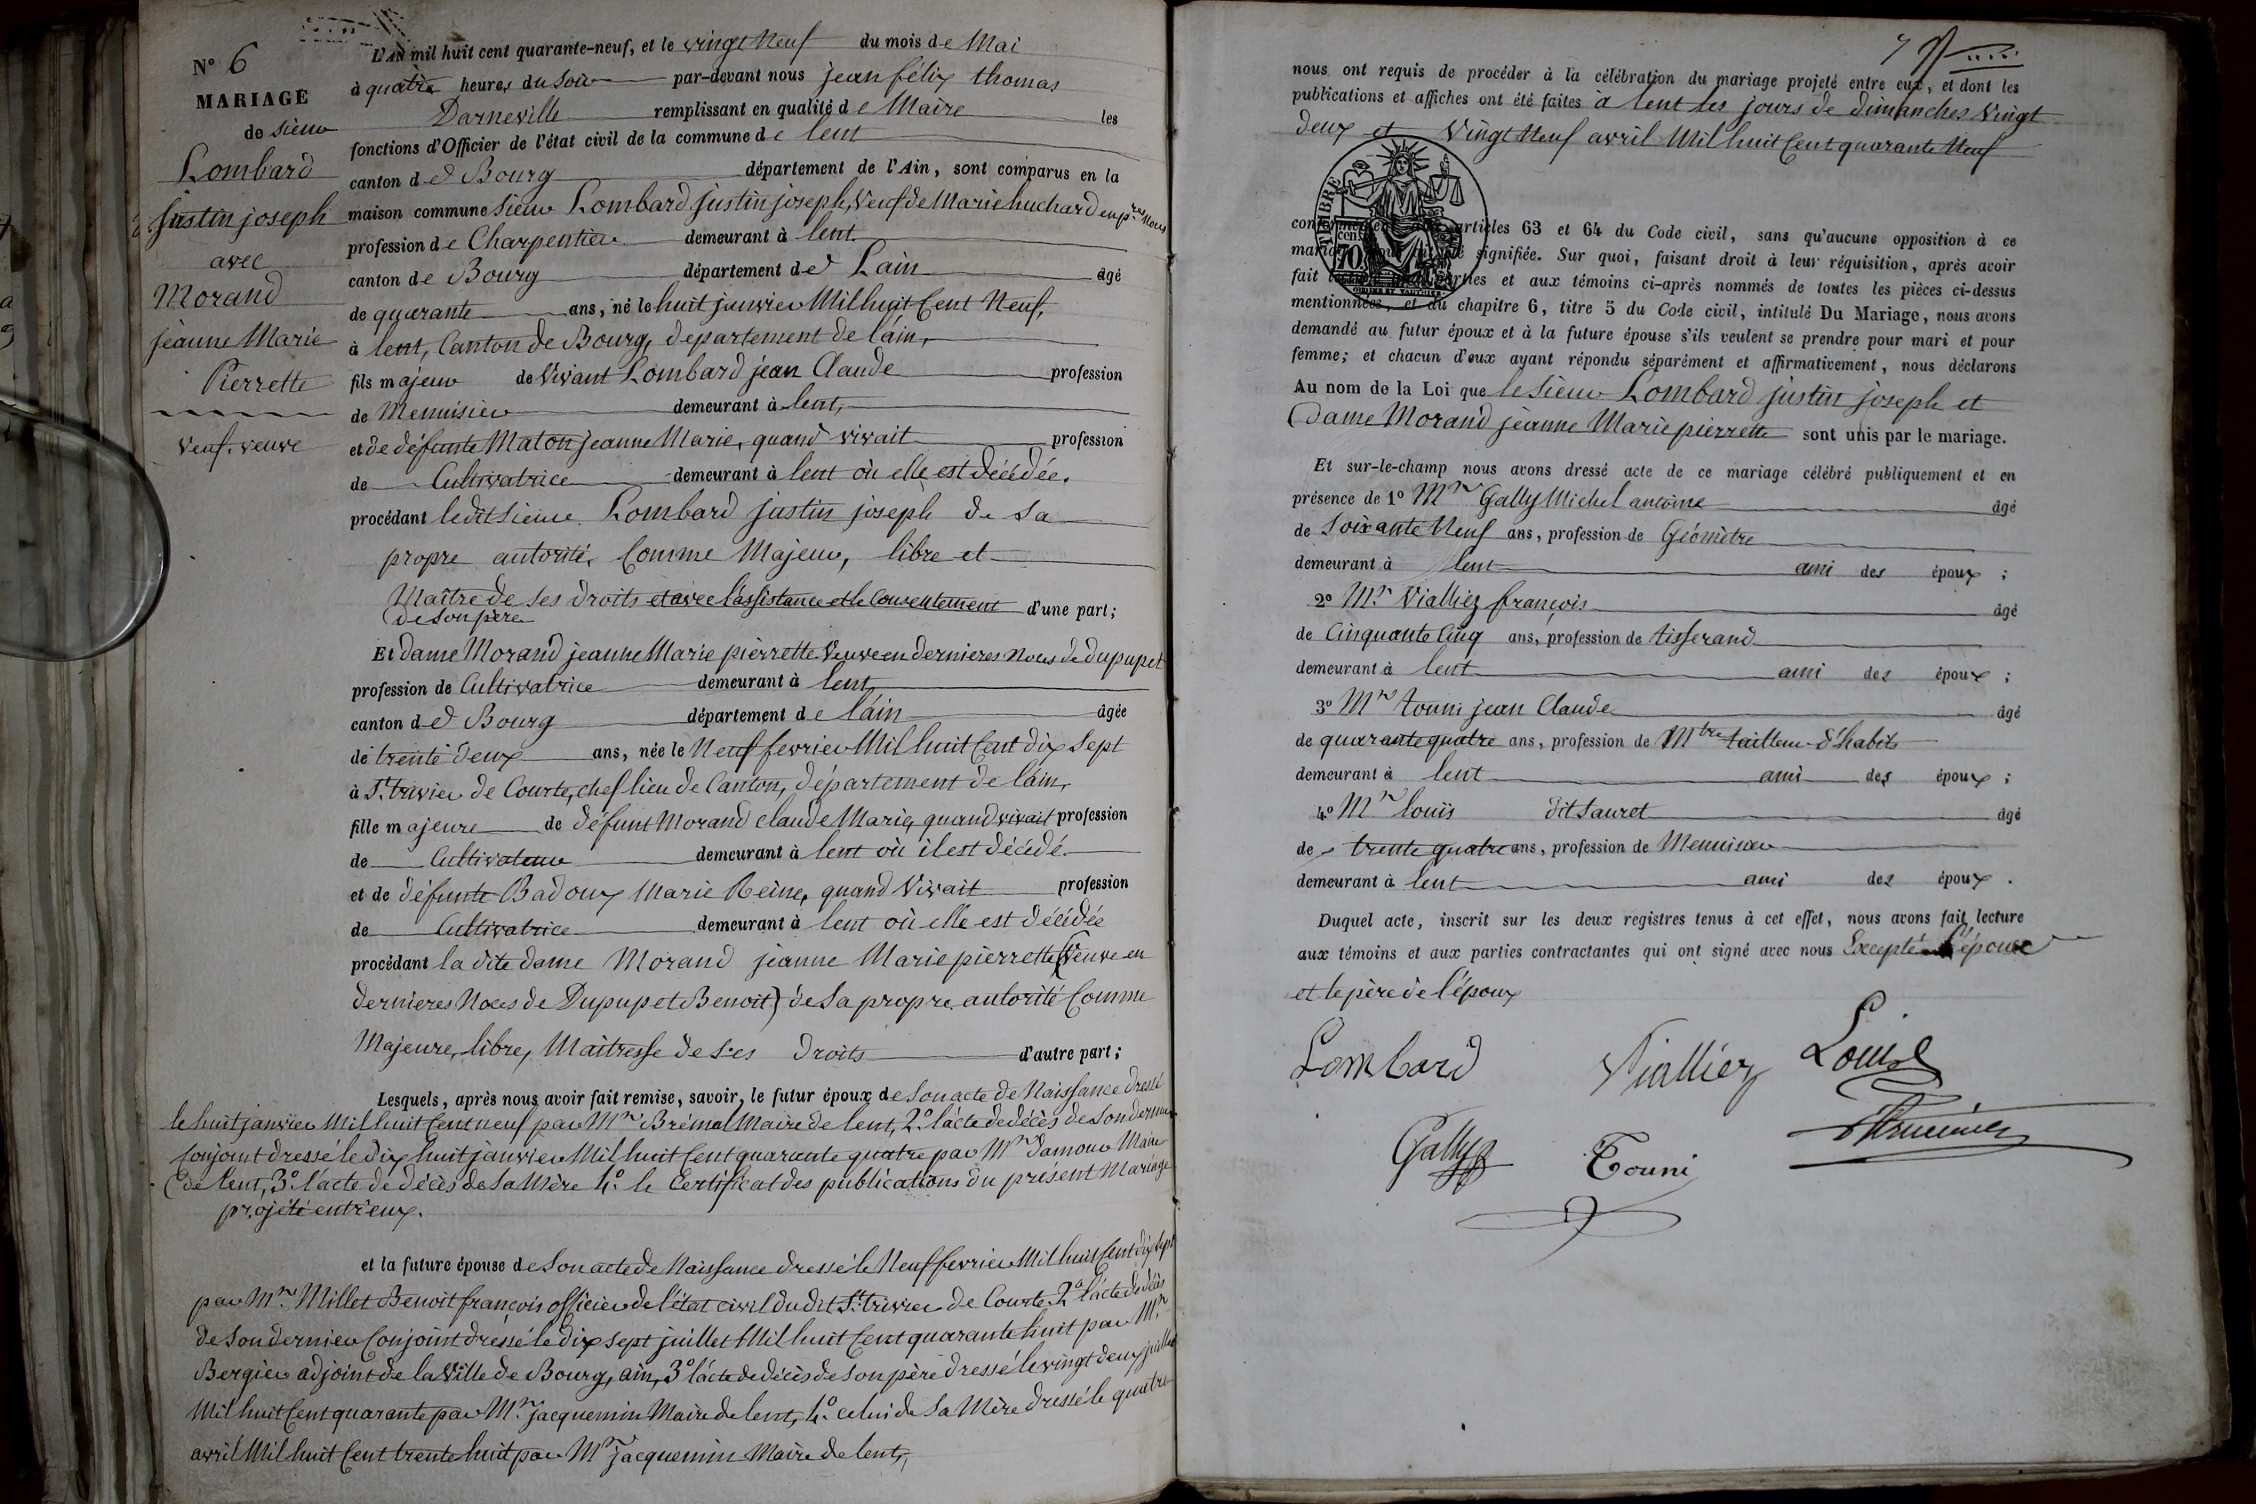 N° 6
MARIAGE
de sieur
Lombard
justin joseph
avec
Morand
jeanne Marie
Pierrette
veuf. veuve
L'AN mil huit cent quarante-neuf, et le vingt Neuf du mois de Mai
à quatre heures du soir par-devant nous jean félix thomas
Darneville remplissant en qualité de Maire les
fonctions d'Officier de l'état civil de la commune de lent
canton de Bourg département de l'Ain, sont comparus en la
maison commune sieur Lombard justin joseph, veuf de Marie huchard en p.res Noces
profession de Charpentier demeurant à lent.
canton de Bourg département de Lain âgé
de quarante ans, né le huit janvier Mil huit Cent Neuf,
à lent, Canton de Bourg, departement de láin,
fils majeur de vivant Lombard jean Claude profession
de Menuisier demeurant à lent,
et de défunte Maton jeanne Marie, quand vivait profession
de Cultivatrice demeurant à lent où elle est décédée.
procédant ledit sieur Lombard justin joseph de sa
propre autorité, Comme Majeur, libre et
Maître de ses droits et avec l'assistance et le Consentement d'une part;
de son père
Et dame Morand jeanne Marie pierrette veuve en dernieres Noces de dupupet
profession de Cultivatrice demeurant à lent,
canton de Bourg département de láin âgée
de trente deux ans, née le Neuf fevrier Mil huit Cent dix sept
à St. trivier de Courte, chef lieu de Canton, département de láin,
fille majeure de défunt Morand claude Marie, quand vivait profession
de Cultivateur demeurant à lent où il est décédé.
et de défunte Badoux Marie Reine, quand Vivait profession
de Cultivatrice demeurant à lent où elle est décédée
procédant la dite dame Morand jeanne Marie pierrette (Veuve en
dernieres Noces de Dupupet Benoit) de sa propre autorité Comme
Majeure, libre, Maîtresse de ses droits d'autre part;
Lesquels, après nous avoir fait remise, savoir, le futur époux de son acte de Naissance dressé
le huit janvier Mil huit Cent neuf par Mr. Brémal Maire de lent, 2.° l'acte de décès de son dernier
Conjoint dressé le dix huit janvier Mil huit Cent quarante quatre par Mr. damour Maire
de lent, 3.° l'acte de décès de sa Mère 4.° le Certificat des publications du présent Mariage
projeté entr'eux.
et la future épouse de son acte de Naissance dressé le Neuf fevrier Mil huit Cent dix sept
par Mr. Millet Benoit françois officier de l'état civil dudit St. trivier de Courte 2.° l'acte de décès
de son dernier Conjoint dressé le dix sept juillet Mil huit Cent quarante huit par Mr.
Bergier adjoint de la Ville de Bourg, ain, 3.° l'acte de décès de son père dressé le vingt deux juillet
Mil huit Cent quarante par Mr. jacquemin Maire de lent, 4.° celui de sa Mère dressé le quatre
avril Mil huit Cent trente huit par Mr. jacquemin Maire de lent,
7
nous ont requis de procéder à la célébration du mariage projeté entre eux, et dont les
publications et affiches ont été faites à lent les jours de dimanches Vingt
deux et Vingt Neuf avril Mil huit Cent quarante Neuf
TIMBRE
70
cent
articles 63 et 64 du Code civil, sans qu'aucune opposition à ce
signifiée. Sur quoi, faisant droit à leur réquisition, après avoir
fait parties et aux témoins ci-après nommés de toutes les pièces ci-dessus
mentionnées, et du chapitre 6, titre 5 du Code civil, intitulé Du Mariage, nous avons
demandé au futur époux et à la future épouse s'ils veulent se prendre pour mari et pour
femme; et chacun d'eux ayant répondu séparément et affirmativement, nous déclarons
Au nom de la Loi que le sieur Lombard justin joseph et
Dame Morand jeanne Marie pierrette sont unis par le mariage.
Et sur-le-champ nous avons dressé acte de ce mariage célébré publiquement et en
présence de 1° Mr. Gally Michel antoine âgé
de soixante Neuf ans, profession de Géomètre
demeurant à lent ami des époux ;
2° Mr. Vialliez françois âgé
de Cinquante Cinq ans, profession de tisserand
demeurant à lent ami des époux ;
3° Mr. touni jean Claude âgé
de quarante quatre ans, profession de Mtre tailleur d'habits
demeurant à lent ami des époux ;
4° Mr. louis dit Sauret âgé
de trente quatre ans, profession de Menuisier
demeurant à lent ami des époux .
Duquel acte, inscrit sur les deux registres tenus à cet effet, nous avons fait lecture
aux témoins et aux parties contractantes qui ont signé avec nous Excepté l'épouse
et le père de l'époux
Lombard Vialliez Louis
Gally Touni